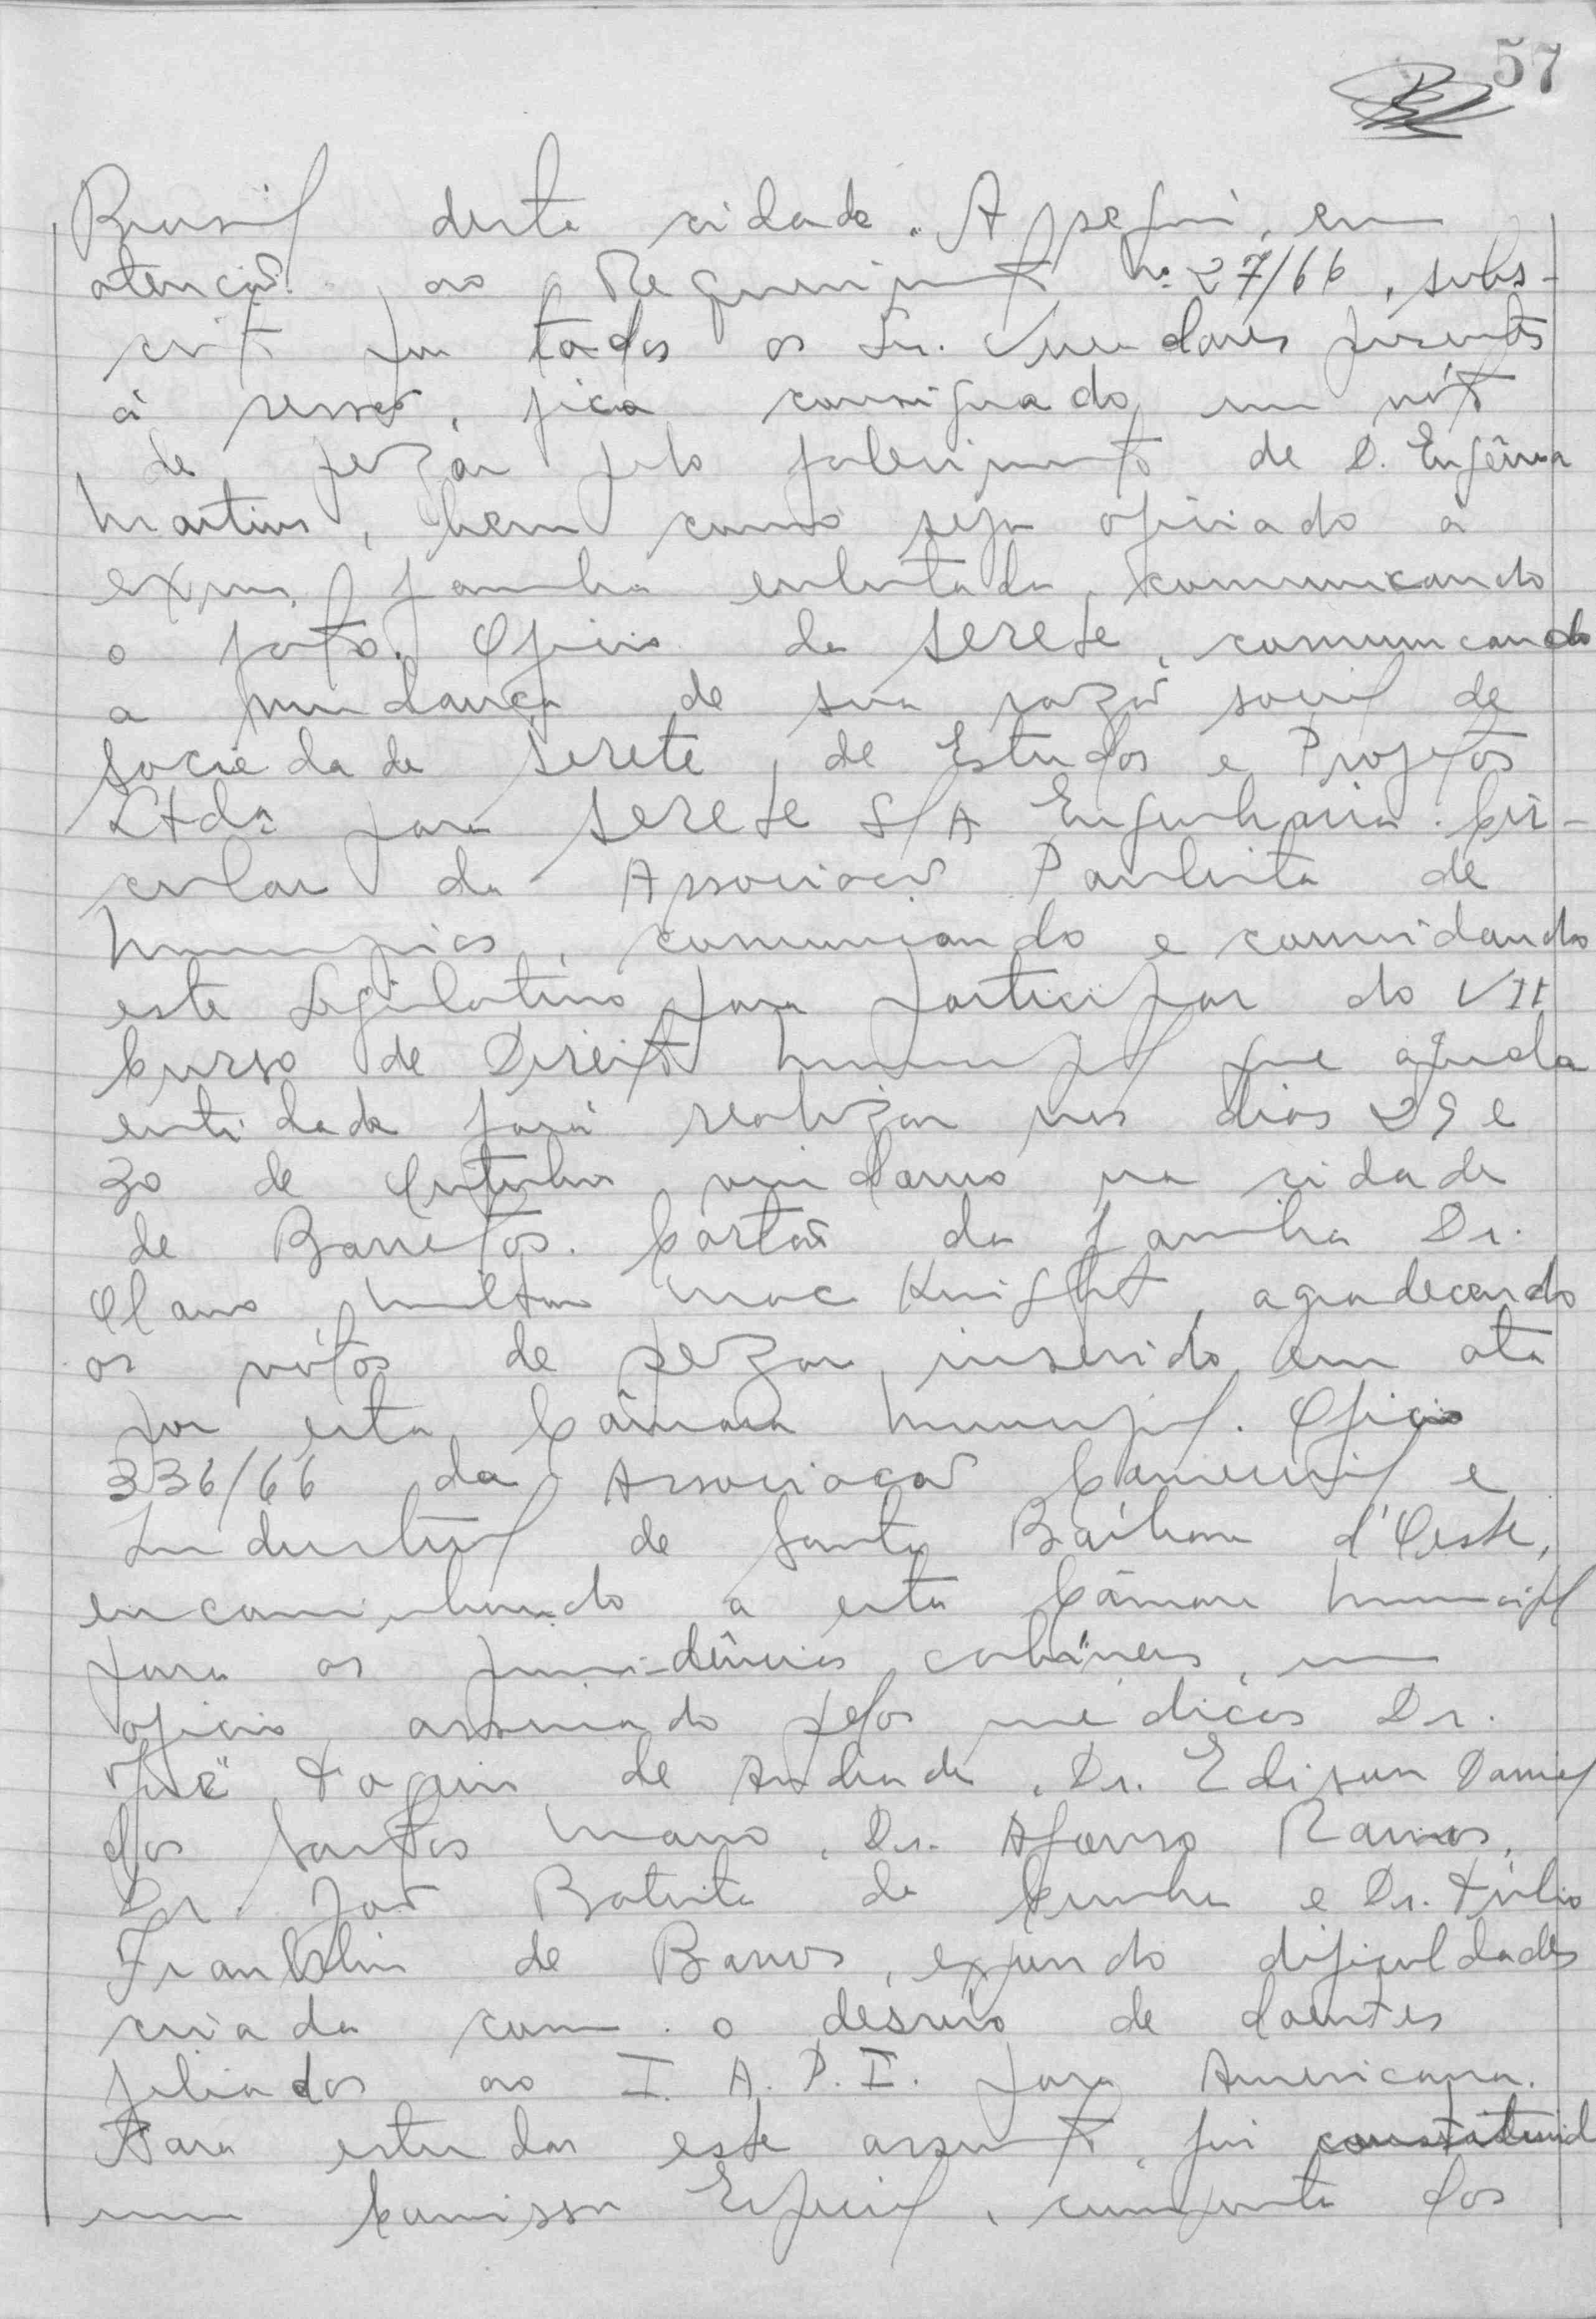 57
Brasil desta cidade. A seguir, em
atenção ao Requerimento nº 27/66, subs-
crito por todos os Sr. Vereadores presentes
à sessão, fica consignado um vóto
de pezar pelo falecimento de D. Eugênia
Martins, bem como seja oficiado a
exma. familia enlutada, comunicando
o fato. Oficio da Serete, comunicando
a mudança de sua razão social de
Sociedade Serete, de Estudos e Projetos
Ltda para Serete S/A Engenharia. Cir-
cular da Associação Paulista de
Municipios, comunicando e convidando
este Legislativo para participar do VII
Curso de Direito Municipal que aquela
entidade fará realizar nos dias 29 e
30 de Outubro vindouro na cidade
de Barretos. Cartão da familia Dr.
Olano Milton Mac Knight, agradecendo
os vótos de pezar, inserido em ata
por esta Câmara Municipal. Oficio
336/66 da Associação Comercial e
Industrial de Santa Bárbara d'Oeste,
encaminhando a esta Câmara Municipal
para as providências cabíveis, um
oficio assinado pelos médicos Dr.
José Tognin de Andrade, Dr. Edison Daniel
dos Santos Mano, Dr. Afonso Ramos,
Dr. João Batista da Cunha e Dr. Túlio
Franklin de Barros, expondo dificuldades
criada com o desvio de doentes
filiados ao I. A. P. I. para Americana.
Para estudar este assunto, foi constituid
uma Comissão Especial, composta dos